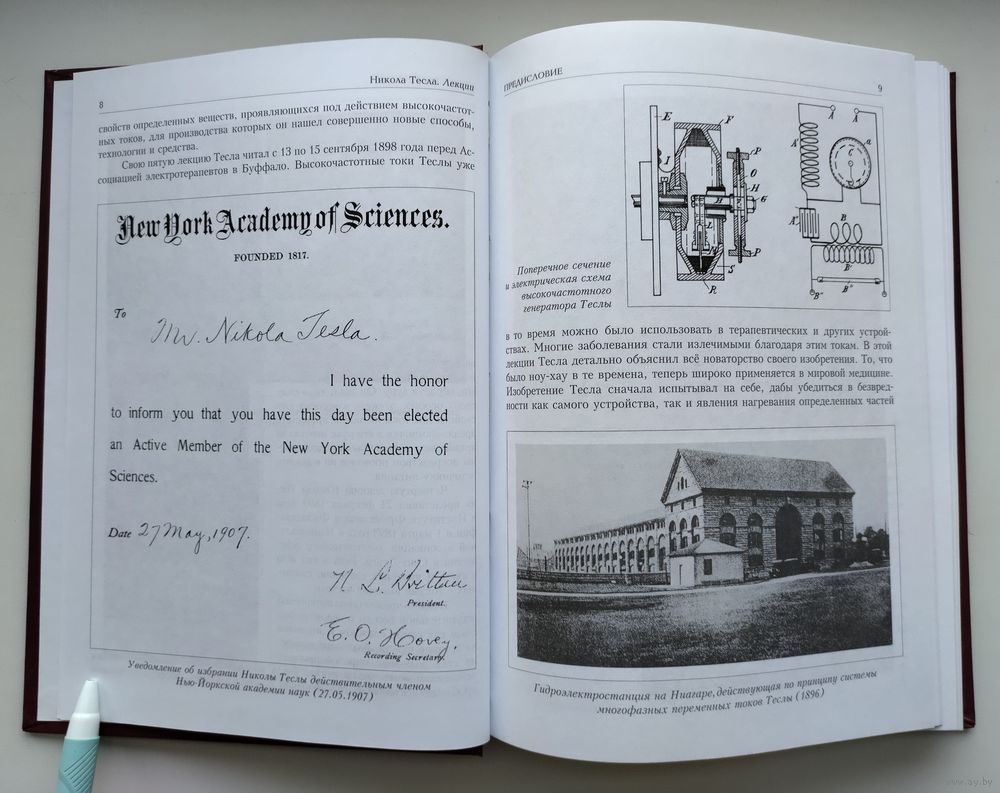 8
Никола Тесла. Лекции
свойств определенных веществ, проявляющихся под действием высокочастот-
ных токов, для производства которых он нашел совершенно новые способы,
технологии и средства.
Свою пятую лекцию Тесла читал с 13 по 15 сентября 1898 года перед Ас-
социацией электротерапевтов в Буффало. Высокочастотные токи Теслы уже
New York Academy of Sciences.
FOUNDED 1817.
To
Mr. Nikola Tesla.
I have the honor
to inform you that you have this day been elected
an Active Member of the New York Academy of
Sciences.
Date 27 May, 1907.
N. L. Britton
President.
E. O. Hovey.
Recording Secretary.
Уведомление об избрании Николы Теслы действительным членом
Нью-Йоркской академии наук (27.05.1907)
ПРЕДИСЛОВИЕ
9
E
F
I
P
O
H
G
H
L
M
P
S
R
A
A
A'
C
a
A"
B
B'
B"
B"
B"
Поперечное сечение
и электрическая схема
высокочастотного
генератора Теслы
в то время можно было использовать в терапевтических и других устрой-
ствах. Многие заболевания стали излечимыми благодаря этим токам. В этой
лекции Тесла детально объяснил всё новаторство своего изобретения. То, что
было ноу-хау в те времена, теперь широко применяется в мировой медицине.
Изобретение Тесла сначала испытывал на себе, дабы убедиться в безвред-
ности как самого устройства, так и явления нагревания определенных частей
Гидроэлектростанция на Ниагаре, действующая по принципу системы
многофазных переменных токов Теслы (1896)
www.ay.by